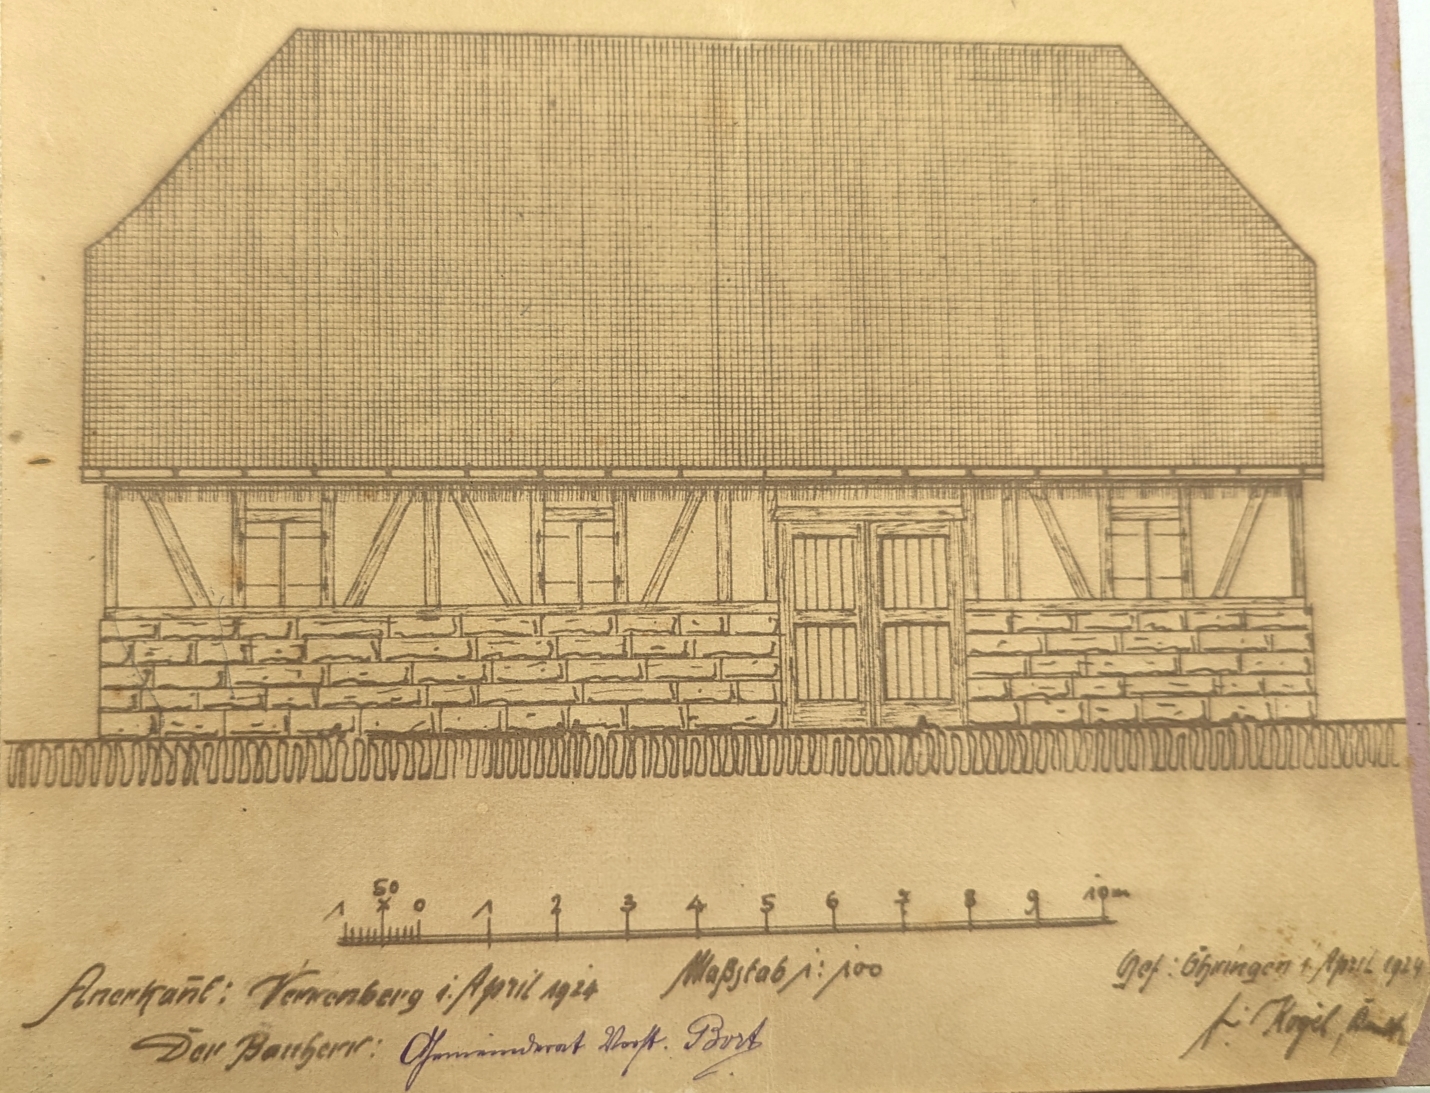 50
1 x 0 1 2 3 4 5 6 7 8 9 10m
Maßstab 1:100
Anerkañt: Verrenberg i. April 1924
Der Bauherr: Gemeinderat Vorst. Bort
Gef: Öhringen i. April 1924